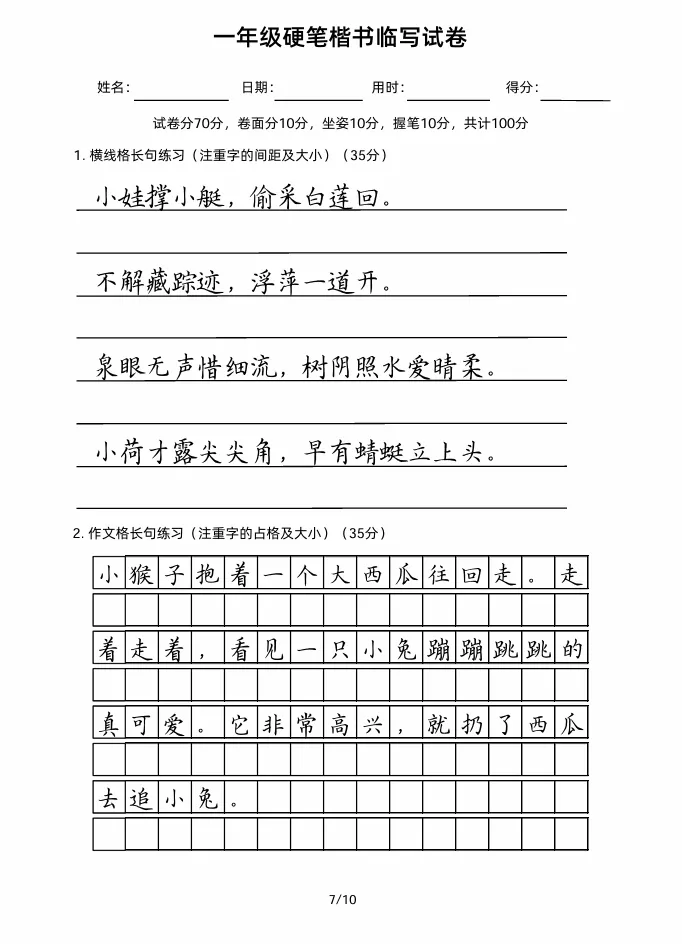 一年级硬笔楷书临写试卷
姓名： 日期： 用时： 得分：
试卷分70分，卷面分10分，坐姿10分，握笔10分，共计100分
1. 横线格长句练习（注重字的间距及大小）（35分）
小娃撑小艇，偷采白莲回。
不解藏踪迹，浮萍一道开。
泉眼无声惜细流，树阴照水爱晴柔。
小荷才露尖尖角，早有蜻蜓立上头。
2. 作文格长句练习（注重字的占格及大小）（35分）
小猴子抱着一个大西瓜往回走。走
着走着，看见一只小兔蹦蹦跳跳的
真可爱。它非常高兴，就扔了西瓜
去追小兔。
7/10